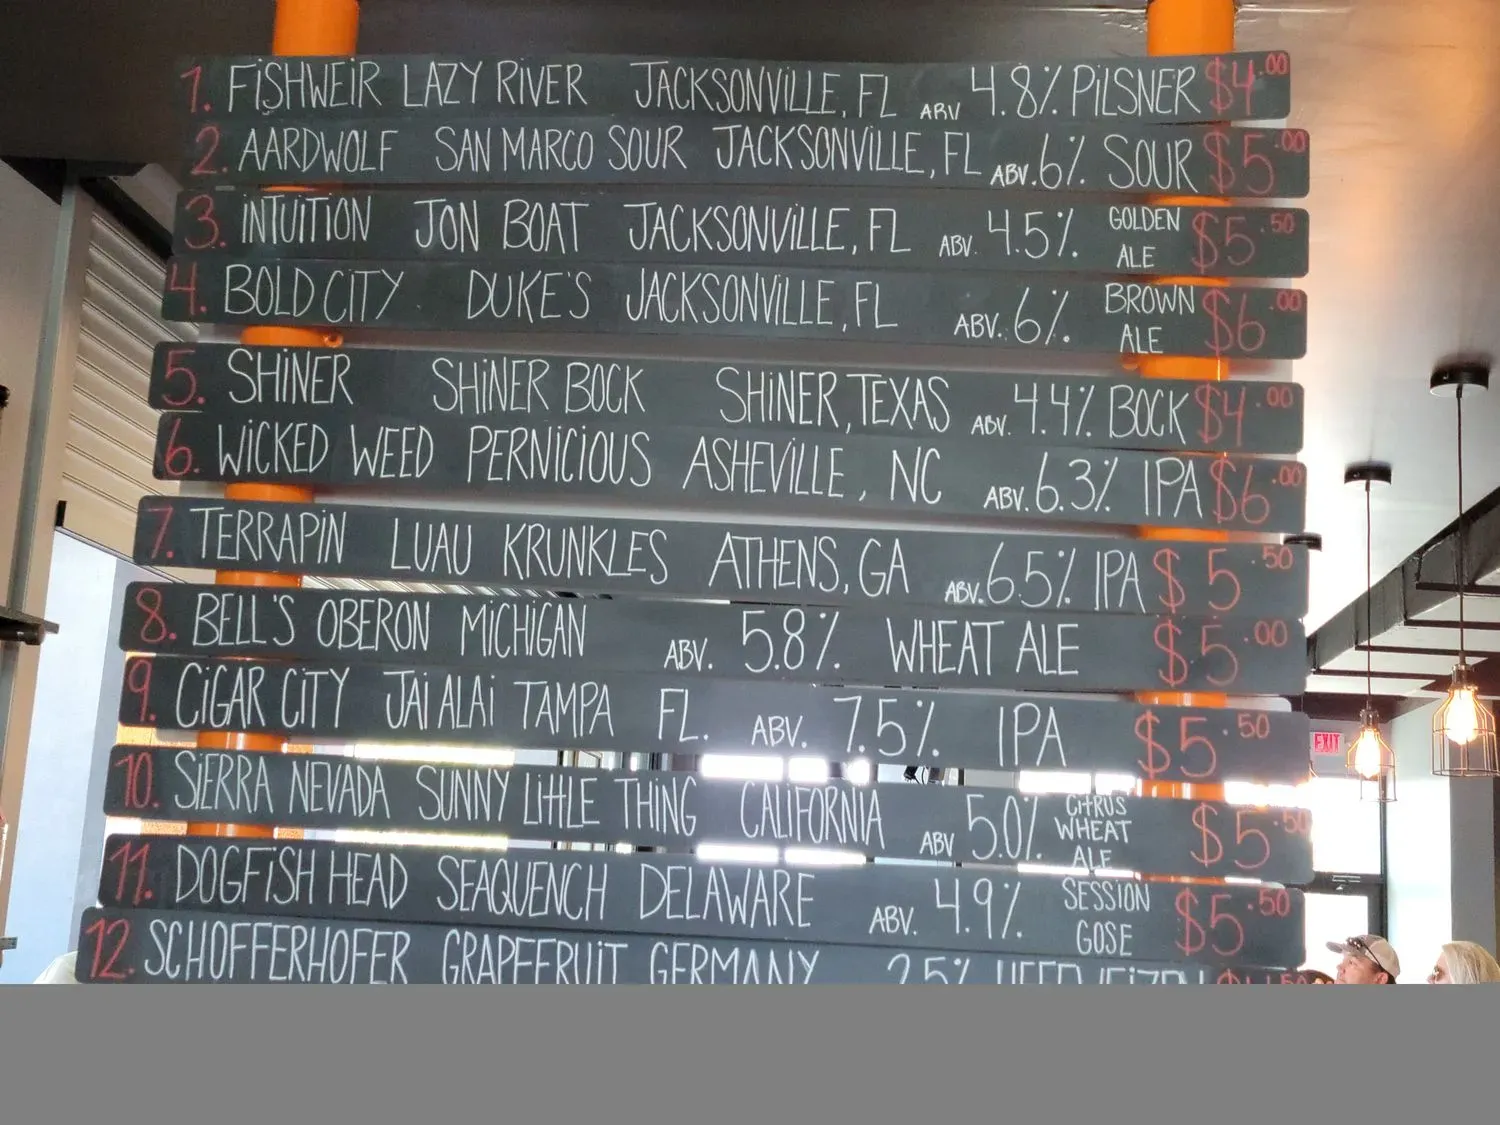 1. FISHWEIR LAZY RIVER JACKSONVILLE, FL ABV 4.8% PILSNER $4.00
2. AARDWOLF SAN MARCO SOUR JACKSONVILLE, FL ABV. 6% SOUR $5.00
3. INTUITION JON BOAT JACKSONVILLE, FL ABV. 4.5% GOLDEN ALE $5.50
4. BOLD CITY DUKE'S JACKSONVILLE, FL ABV. 6% BROWN ALE $6.00
5. SHINER SHINER BOCK SHINER, TEXAS ABV. 4.4% BOCK $4.00
6. WICKED WEED PERNICIOUS ASHEVILLE, NC ABV. 6.3% IPA $6.00
7. TERRAPIN LUAU KRUNKLES ATHENS, GA ABV. 6.5% IPA $5.50
8. BELL'S OBERON MICHIGAN ABV. 5.8% WHEAT ALE $5.00
9. CIGAR CITY JAI ALAI TAMPA FL. ABV. 7.5% IPA $5.50
10. SIERRA NEVADA SUNNY LITTLE THING CALIFORNIA ABV 5.0% CITRUS WHEAT ALE $5.50
11. DOGFISH HEAD SEAQUENCH DELAWARE ABV. 4.9% SESSION GOSE $5.50
12. SCHOFFERHOFER GRAPEFRUIT GERMANY 2.5% HEFEWEIZEN
EXIT